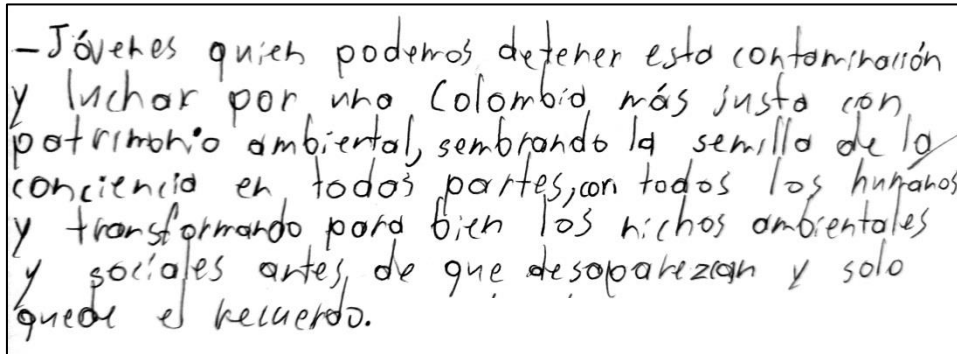 -Jóvenes quien podemos detener esta contaminación
y luchar por una Colombia más justa con
patrimonio ambiental, sembrando la semilla de la
conciencia en todas partes, con todos los humanos
y transformando para bien los nichos ambientales
y sociales antes de que desaparezcan y solo
quede el recuerdo.